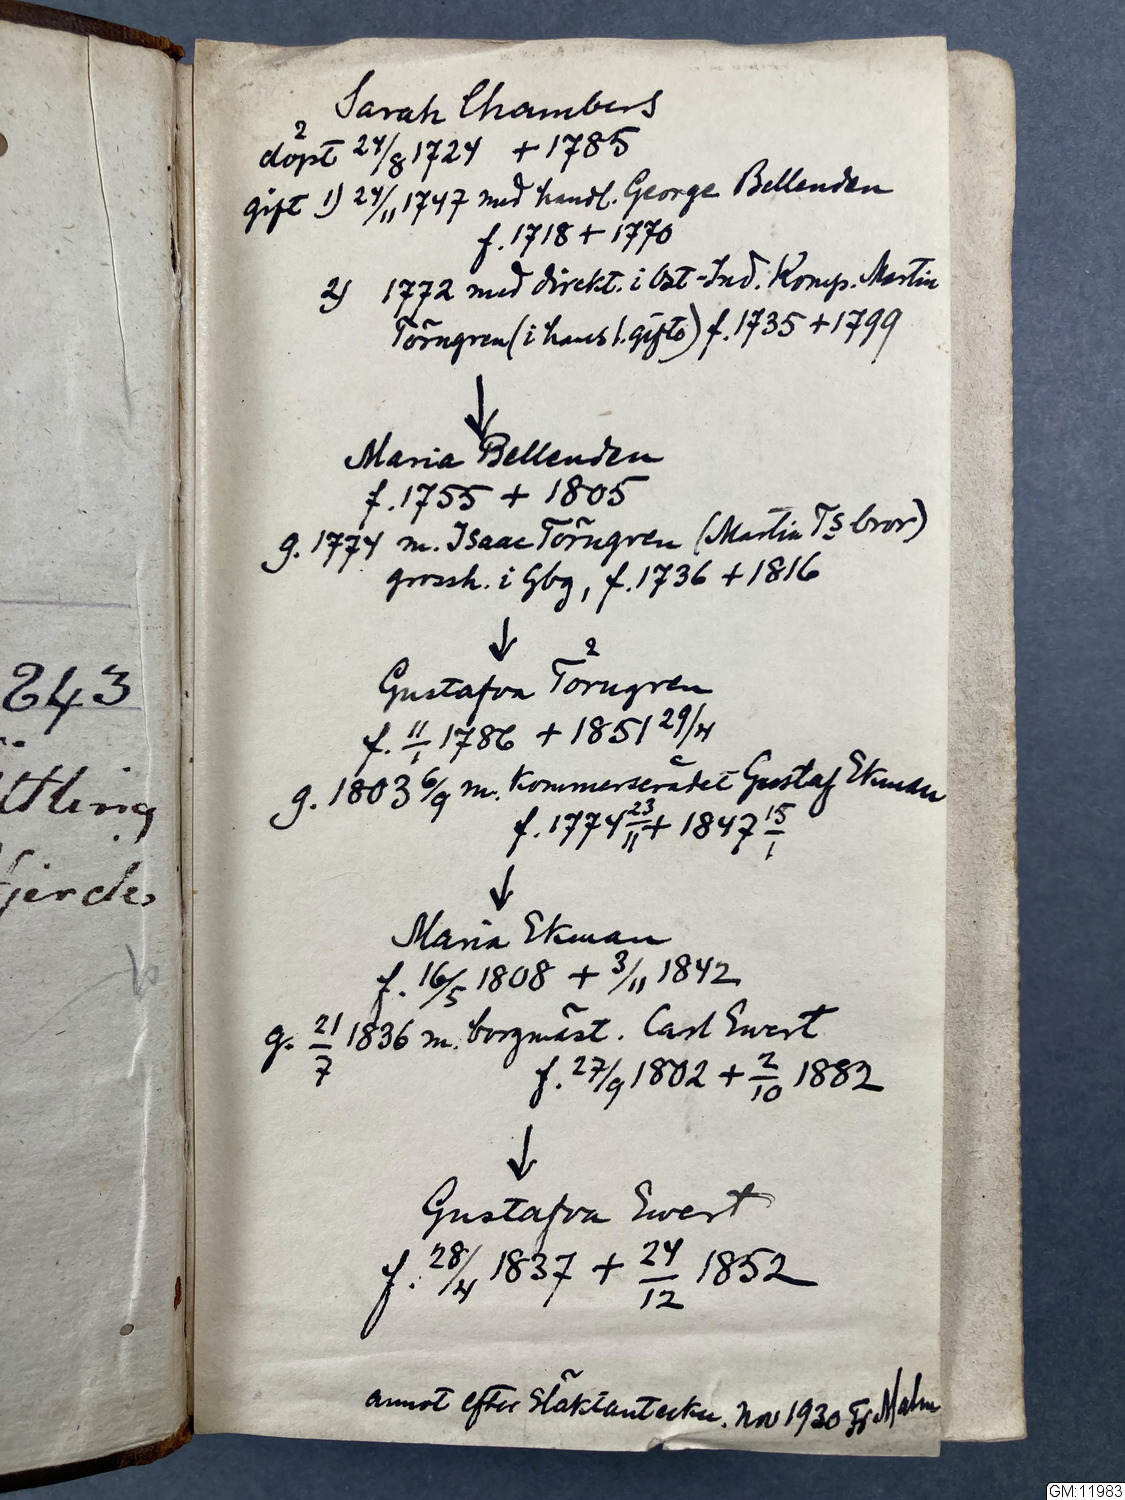 Sarah Chambers
döpt 24/8 1724 + 1785
gift 1) 24/11 1747 med handl. George Bellenden
f. 1718 + 1770
2) 1772 med direkt. i Ost-Ind. Komp. Martin
Törngren (i hans 1. gifte) f. 1735 + 1799
↓
Maria Bellenden
f. 1755 + 1805
g. 1774 m. Isaac Törngren (Martin Ts bror)
grossh. i Gbg, f. 1736 + 1816
↓
Gustafva Törngren
f. 11/1 1786 + 1851 29/4
g. 1803 6/9 m. Kommerserådet Gustaf Ekman
f. 1774 23/11 + 1847 15/1
↓
Maria Ekman
f. 16/5 1808 + 3/11 1842
g. 21/7 1836 m. borgmäst. Carl Ewert
f. 27/9 1802 + 2/10 1882
↓
Gustafva Ewert
f. 28/4 1837 + 24/12 1852
annot efter Släktanteckn. Nov 1930 Malm
243
ttling
fjerde
GM:11983